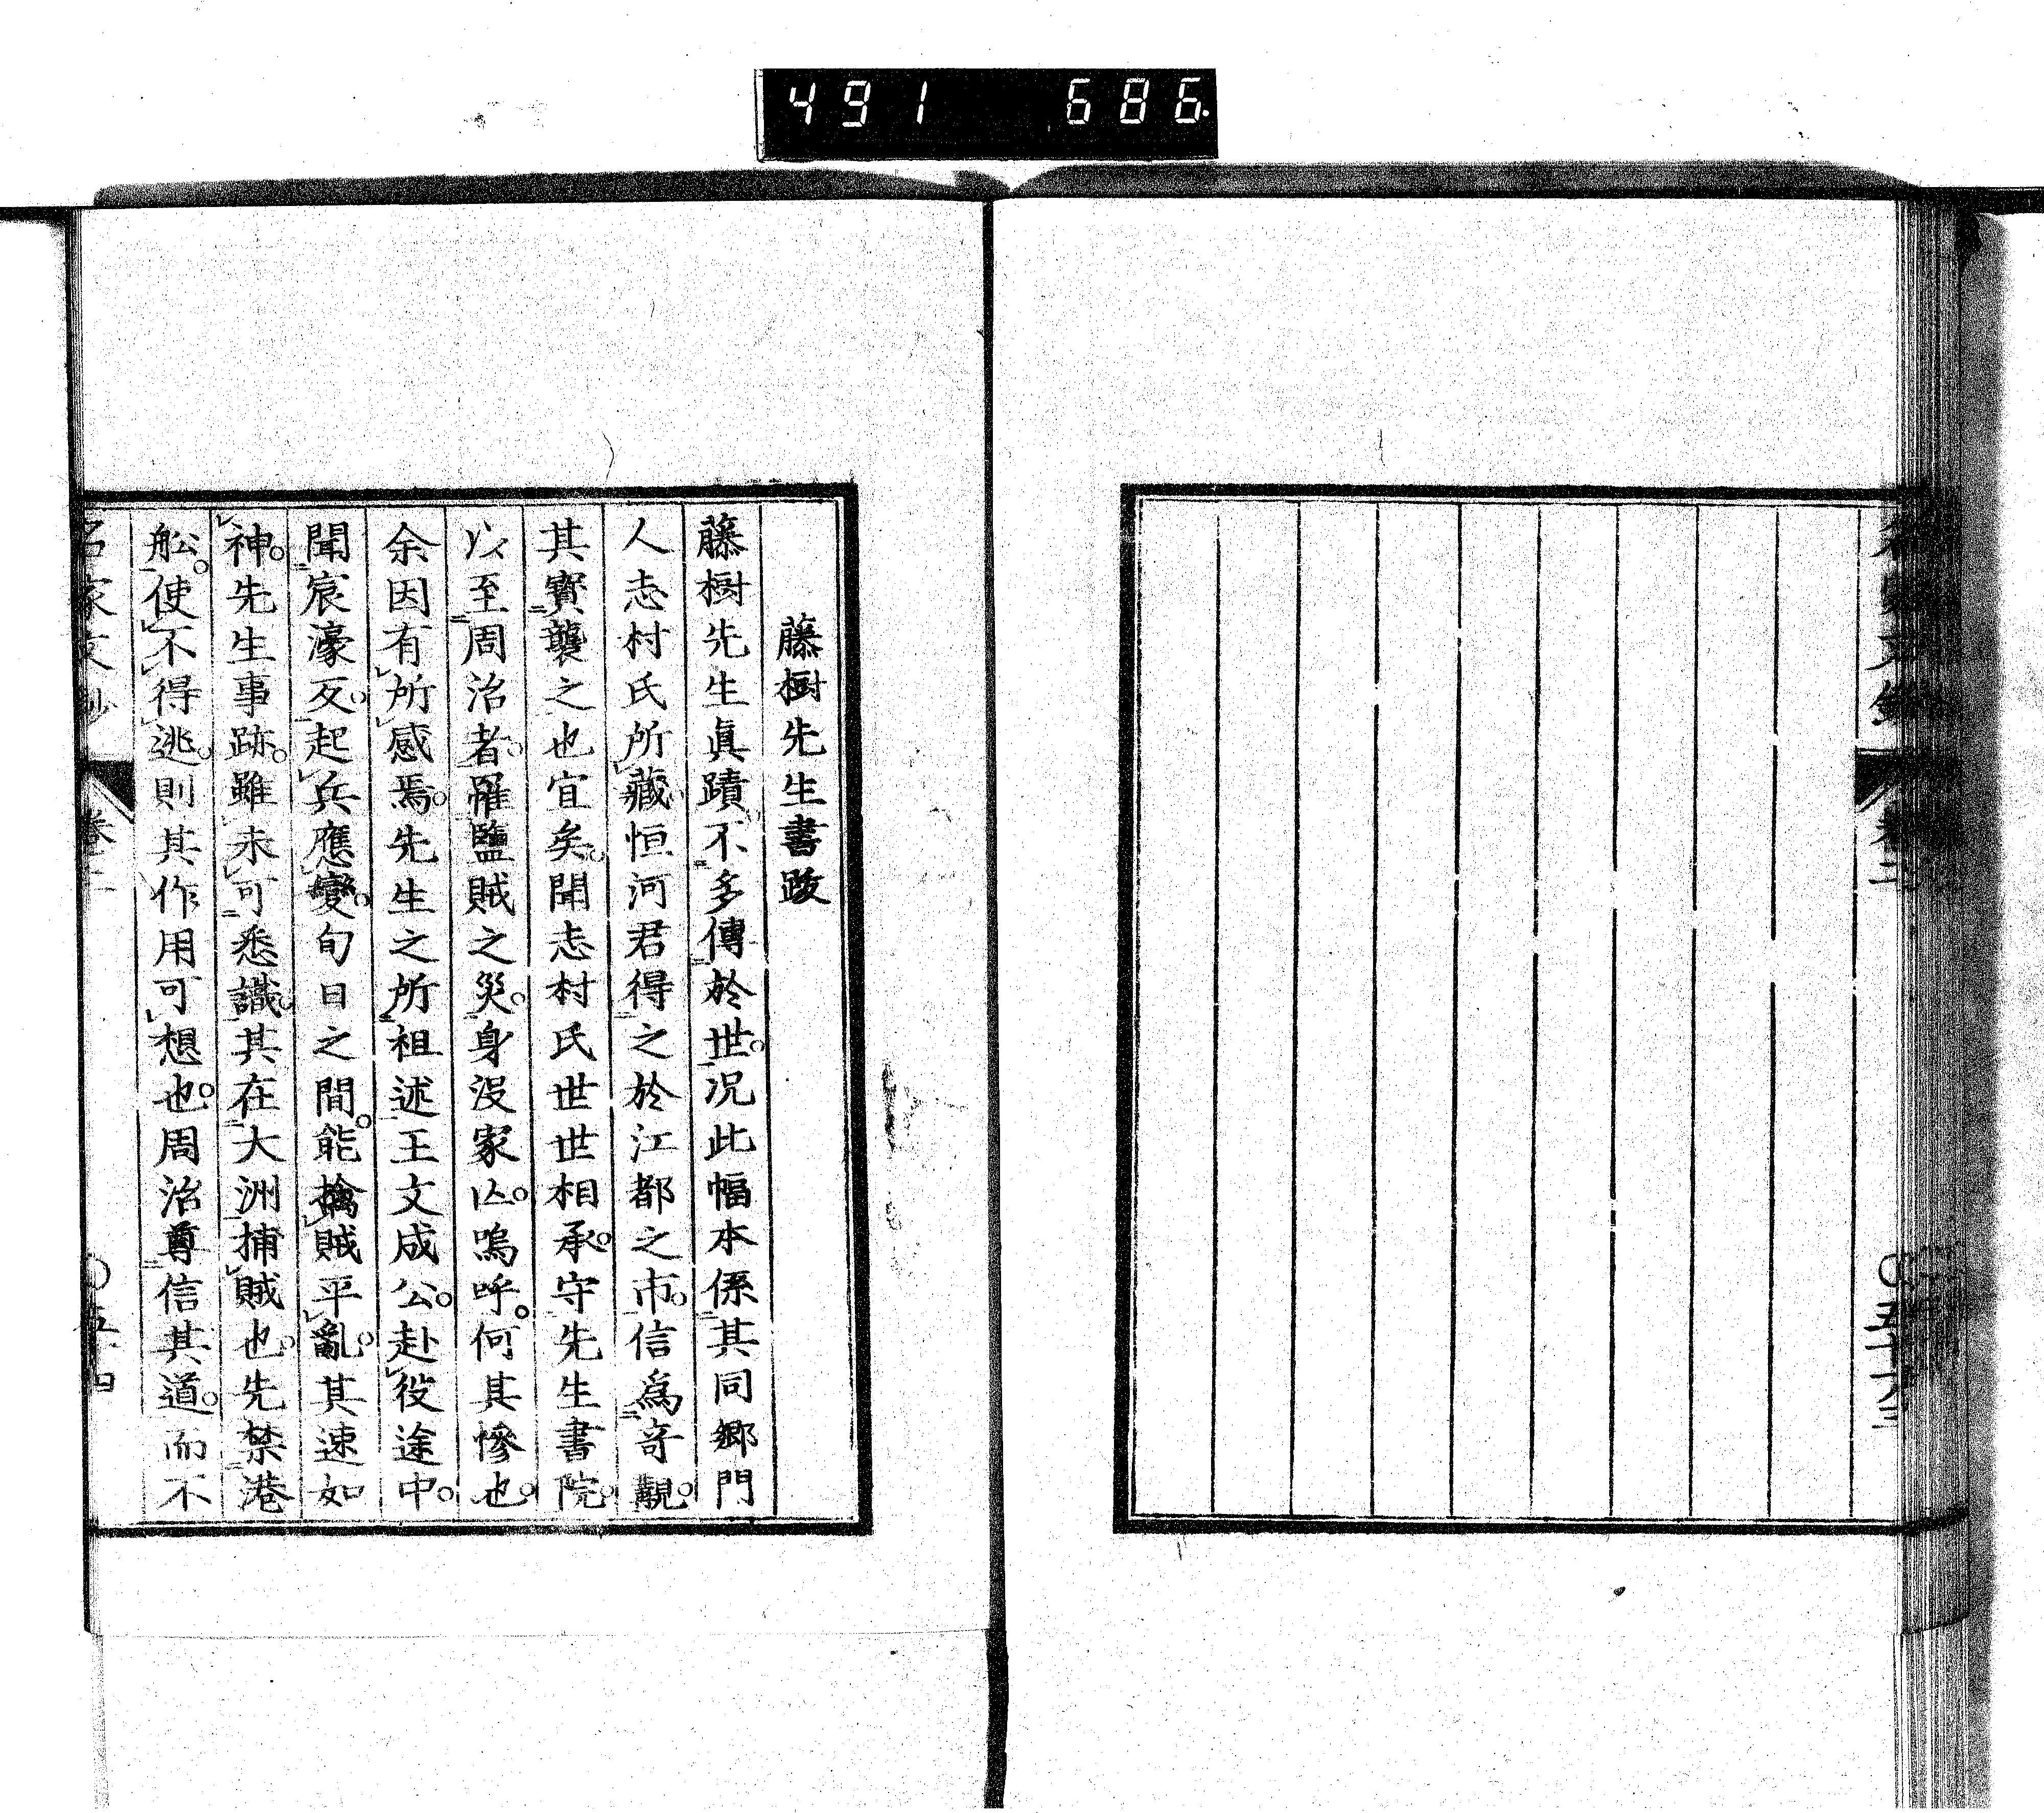 491 686.
藤樹先生書跋
藤樹先生眞蹟不多傳於世。況此幅本係其同鄉門
人志村氏所藏恒河君得之於江都之市。信爲奇觀。
其寳襲之也宜矣。聞志村氏世世相承。守先生書院。
以至周治者。罹鹽賊之災。身沒家亾。嗚呼。何其慘也。
余因有所感焉。先生之所祖述王文成公。赴役途中。
聞宸濠反。起兵應變。旬日之間。能擒賊平亂。其速如
神。先生事跡。雖未可悉識。其在大洲捕賊也。先禁港
舩。使不得逃。則其作用可想也。周治尊信其道。而不
名家文鈔
卷三